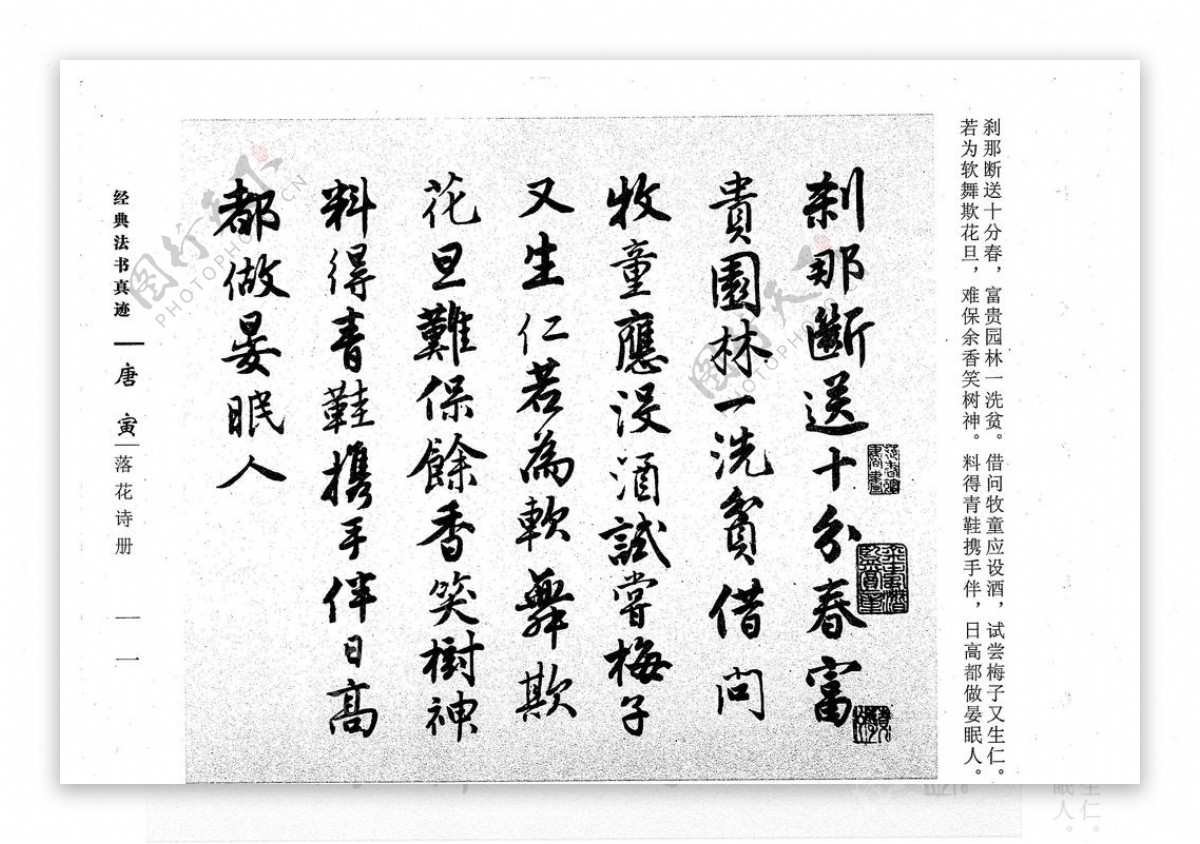 刹那断送十分春，富贵园林一洗贫。借问牧童应设酒，试尝梅子又生仁。
若为软舞欺花旦，难保余香笑树神。料得青鞋携手伴，日高都做晏眠人。
刹那斷送十分春富
貴園林一洗貧借問
牧童應没酒試嘗梅子
又生仁若為軟舞欺
花旦難保餘香笑樹神
料得青鞋携手伴日高
都做晏眠人
经典法书真迹 唐寅 落花诗册
一一
生仁。
眠人。
PHOTOPHOTO.CN